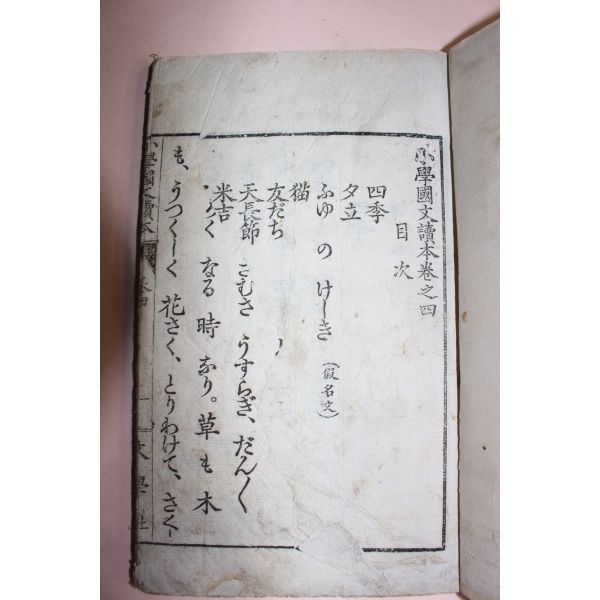 小學國文讀本卷之四
目次
四季
夕立
ふゆ の けしき (假名文)
猫
友だち
天長節 さむさ うすらぎ、だん〳〵
米吉
く なる 時 なり。草 も 木
も、うつくしく 花さく、とりわけて、さく
小學國文讀本 卷四 一 文學社